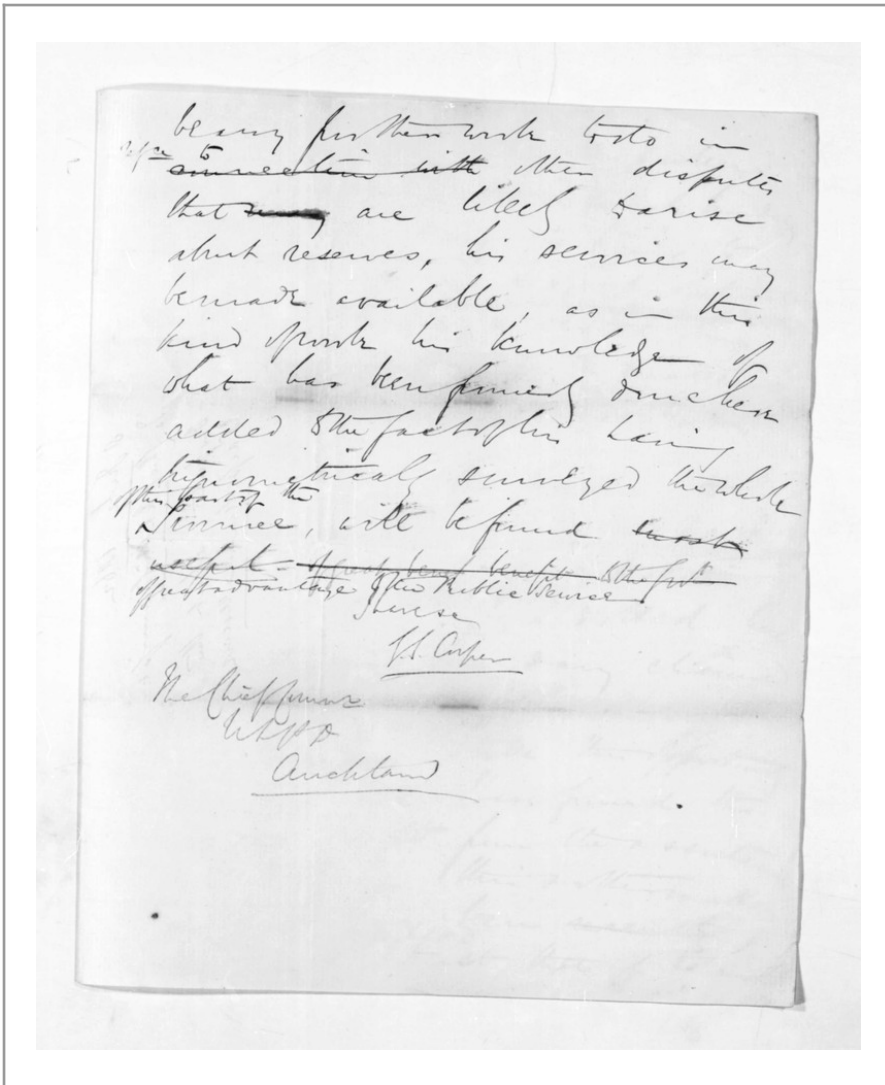 be any further work to do in
to
connection with other disputes
that may are likely to arise
about reserves, his services may
be made available, as in this
kind of work his knowledge of
what has been formerly done here
added to the fact of his having
trigonometrically surveyed the whole
of this part of the
Province, will be found most
useful - of great benef benefit to the Govt
of great advantage to the Public Service
I have &c
G.S. Cooper
The Chief Commr
N L P D
Auckland